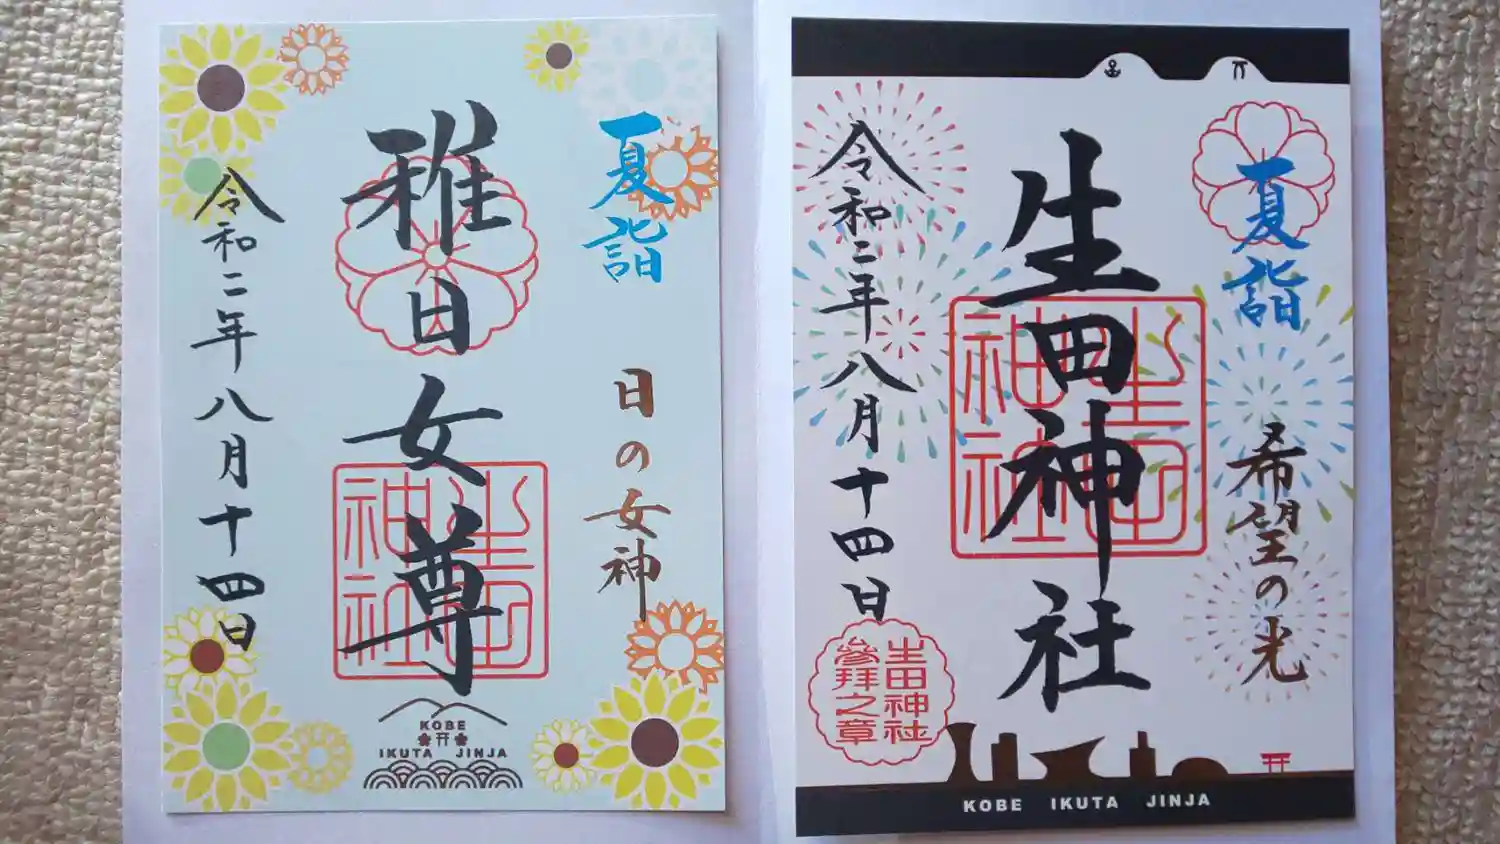 夏詣
日の女神
稚日女尊
生田神社
令和二年八月十四日
KOBE
IKUTA JINJA
夏詣
希望の光
生田神社
生田神社
令和二年八月十四日
生田神社
參拜之章
KOBE IKUTA JINJA